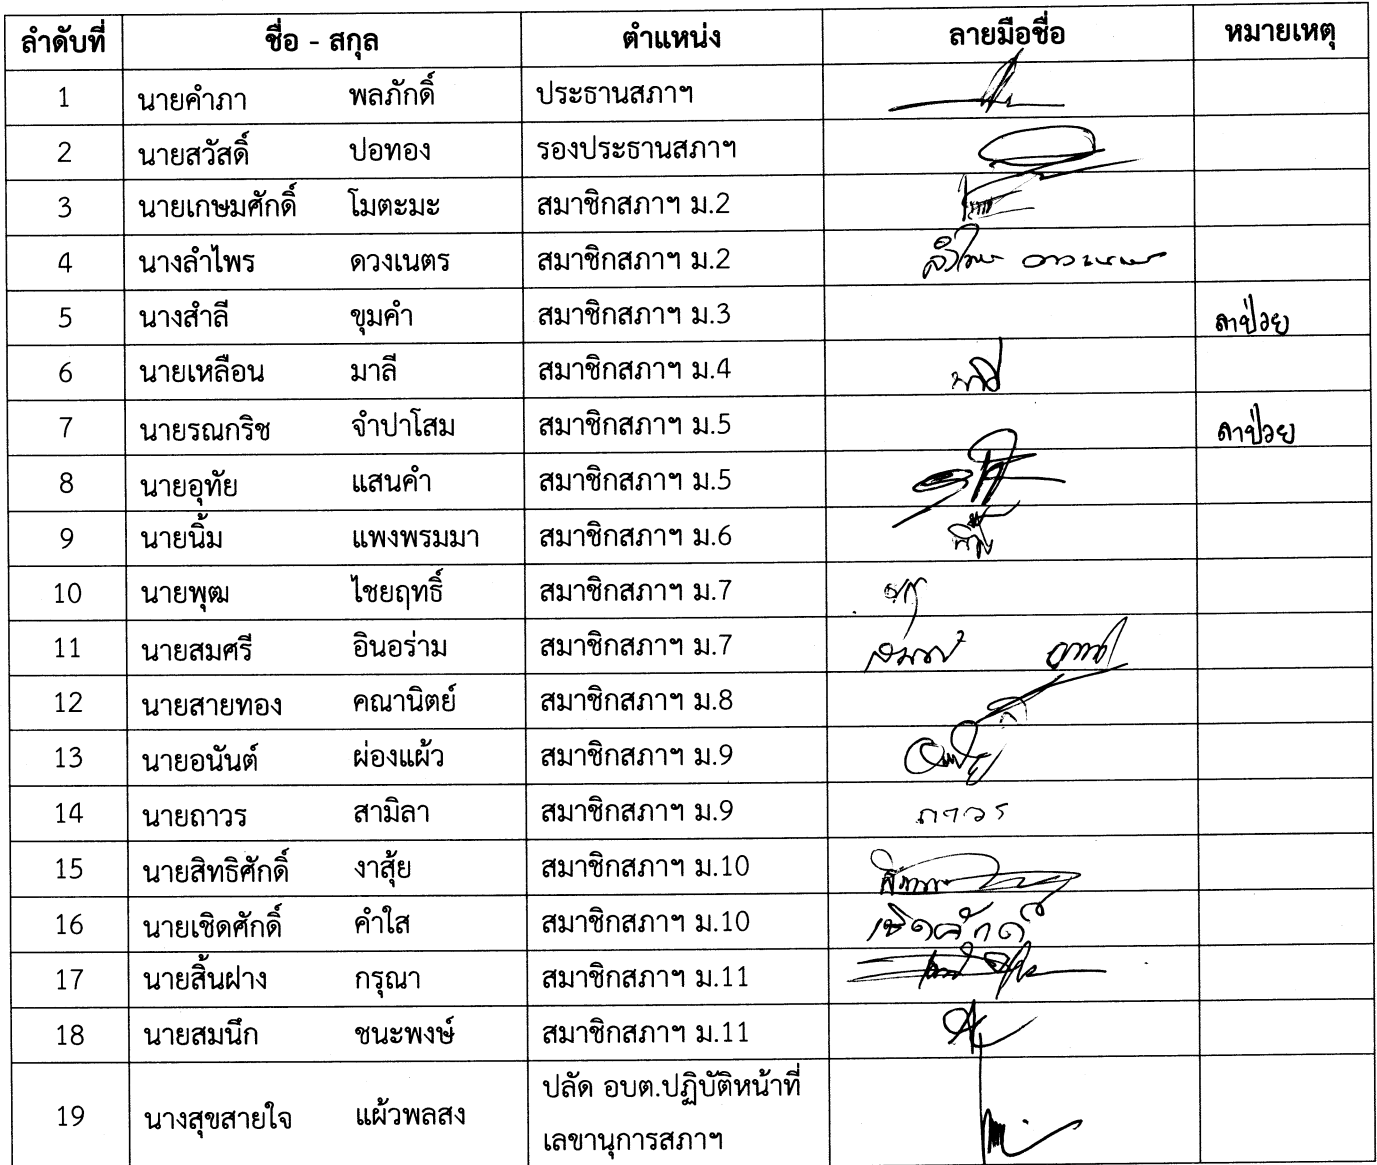 ลำดับที่ ชื่อ - สกุล ตำแหน่ง ลายมือชื่อ หมายเหตุ
1 นายคำภา พลภักดิ์ ประธานสภาฯ
2 นายสวัสดิ์ ปอทอง รองประธานสภาฯ
3 นายเกษมศักดิ์ โมตะมะ สมาชิกสภาฯ ม.2
4 นางลำไพร ดวงเนตร สมาชิกสภาฯ ม.2 ลำไพร ดวงเนตร
5 นางสำลี ขุมคำ สมาชิกสภาฯ ม.3 ลาป่วย
6 นายเหลือน มาลี สมาชิกสภาฯ ม.4
7 นายรณกริช จำปาโสม สมาชิกสภาฯ ม.5 ลาป่วย
8 นายอุทัย แสนคำ สมาชิกสภาฯ ม.5
9 นายนิ้ม แพงพรมมา สมาชิกสภาฯ ม.6
10 นายพุฒ ไชยฤทธิ์ สมาชิกสภาฯ ม.7
11 นายสมศรี อินอร่าม สมาชิกสภาฯ ม.7
12 นายสายทอง คณานิตย์ สมาชิกสภาฯ ม.8
13 นายอนันต์ ผ่องแผ้ว สมาชิกสภาฯ ม.9
14 นายถาวร สามิลา สมาชิกสภาฯ ม.9 ถาวร
15 นายสิทธิศักดิ์ งาสุ้ย สมาชิกสภาฯ ม.10
16 นายเชิดศักดิ์ คำใส สมาชิกสภาฯ ม.10 เชิดศักดิ์
17 นายสิ้นฝาง กรุณา สมาชิกสภาฯ ม.11
18 นายสมนึก ชนะพงษ์ สมาชิกสภาฯ ม.11
19 นางสุขสายใจ แผ้วพลสง ปลัด อบต.ปฏิบัติหน้าที่
เลขานุการสภาฯ